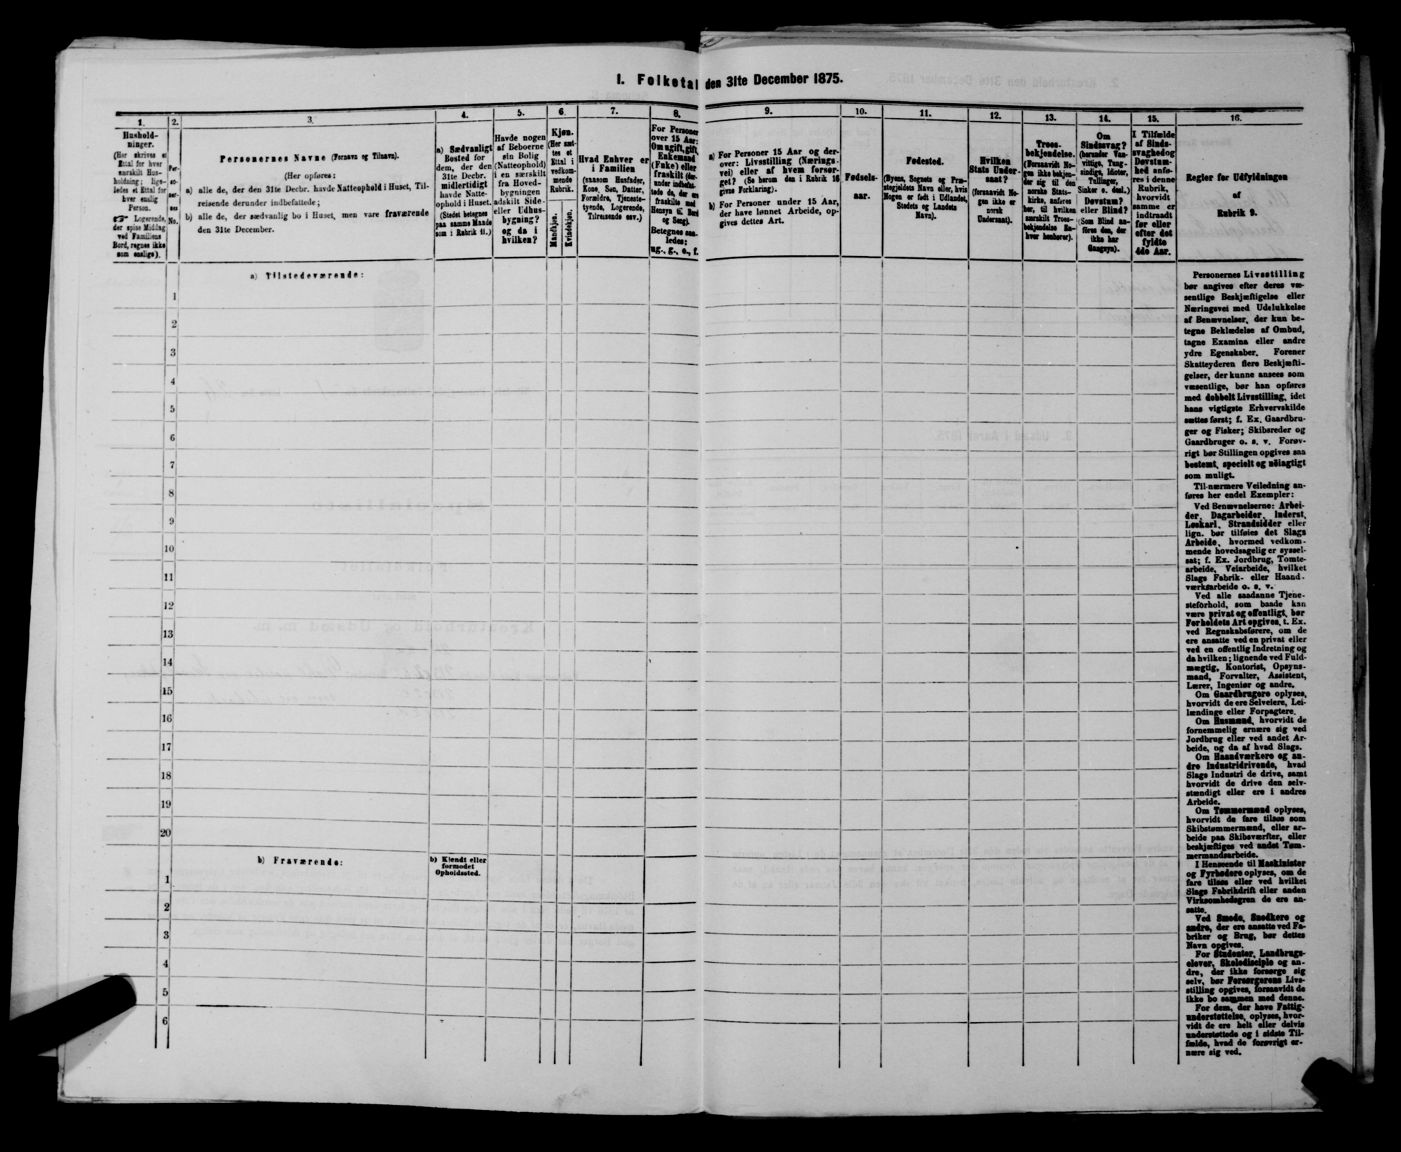 I. Folketal den 31te December 1875.
1.
Hushold-
ninger.
(Her skrives et
Ettal for hver
særskilt Hus-
holdning; lige-
ledes et Ettal for
hver enslig
Person.
Logerende,
der spise Middag
ved Familiens
Bord, regnes ikke
som enslige).
2.
Per-
so-
ner-
nes
No.
3.
Personernes Navne (Fornavn og Tilnavn).
(Her opføres:
a) alle de, der den 31te Decbr. havde Natteophold i Huset, Til-
reisende derunder indbefattede;
b) alle de, der sædvanlig bo i Huset, men vare fraværende
den 31te December.
4.
a) Sædvanligt
Bosted for
dem, der den
31te Decbr.
midlertidigt
havde Natte-
ophold i Huset.
(Stedet betegnes
paa samme Maade
som i Rubrik 11.)
5.
Havde nogen
af Beboerne
sin Bolig
(Natteophold)
i en særskilt
fra Hoved-
bygningen
adskilt Side-
eller Udhus-
bygning?
og da i
hvilken?
6.
Kjøn.
(Her sæt-
tes et
Ettal i
vedkom-
mende
Rubrik.
Mandkjøn.
Kvindekjøn.
7.
Hvad Enhver er
i Familien
(saasom Husfader,
Kone, Søn, Datter,
Forældre, Tjeneste-
tyende, Logerende,
Tilreisende osv.)
8.
For Personer
over 15 Aar:
Om ugift, gift,
Enkemand
(Enke) eller
fraskilt (der-
under indbefat-
tede de, der ere
fraskilte med
Hensyn til Bord
og Seng).
Betegnes saa-
ledes:
ug., g., e., f.
9.
a) For Personer 15 Aar og der-
over: Livsstilling (Nærings-
vei) eller af hvem forsør-
get? (Se herom den i Rubrik 16
givne Forklaring).
b) For Personer under 15 Aar,
der have lønnet Arbeide, op-
gives dettes Art.
10.
Fødsels-
aar.
11.
Fødested.
(Byens, Sognets og Præ-
stegjeldets Navn eller, hvis
Nogen er født i Udlandet,
Stedets og Landets
Navn).
12.
Hvilken
Stats Under-
saat?
(forsaavidt No-
gen ikke er
norsk
Undersaat).
13.
Troes-
bekjendelse.
(Forsaavidt No-
gen ikke bekjen-
der sig til den
norske Stats-
kirke, anføres
her, til hvilken
særskilt Troes-
bekjendelse En-
hver henhører).
14.
Om
Sindssvag?
(herunder Van-
vittige, Tung-
sindige, Idioter,
Tullinger,
Sinker o. desl.)
Døvstum?
eller Blind?
(Som Blind an-
føres den, der
ikke har
Gangsyn).
15.
I Tilfælde
af Sinds-
svaghed og
Døvstum-
hed anfø-
res i denne
Rubrik,
hvorvidt
samme er
indtraadt
før eller
efter det
fyldte
4de Aar.
16.
Regler for Udfyldningen
af
Rubrik 9.
a) Tilstedeværende:
1
2
3
4
5
6
7
8
9
10
11
12
13
14
15
16
17
18
19
20
b) Fraværende:
b) Kjendt eller
formodet
Opholdssted.
1
2
3
4
5
6
Personernes Livsstilling
bør angives efter deres væ-
sentlige Beskjæftigelse eller
Næringsvei med Udelukkelse
af Benævnelser, der kun be-
tegne Beklædelse af Ombud,
tagne Examina eller andre
ydre Egenskaber. Forener
Skatteyderen flere Beskjæfti-
gelser, der kunne ansees som
væsentlige, bør han opføres
med dobbelt Livsstilling, idet
hans vigtigste Erhvervskilde
sættes først; f. Ex. Gaardbru-
ger og Fisker; Skibsreder og
Gaardbruger o. s. v. Forøv-
rigt bør Stillingen opgives saa
bestemt, specielt og nøiagtigt
som muligt.
Til nærmere Veiledning an-
føres her endel Exempler:
Ved Benævnelserne: Arbei-
der, Dagarbeider, Inderst,
Løskarl, Strandsidder eller
lign. bør tilføies det Slags
Arbeide, hvormed vedkom-
mende hovedsagelig er syssel-
sat; f. Ex. Jordbrug, Tomte-
arbeide, Veiarbeide, hvilket
Slags Fabrik- eller Haand-
værksarbeide o. s. v.
Ved alle saadanne Tjene-
steforhold, som baade kan
være privat og offentligt, bør
Forholdets Art opgives, t. Ex.
ved Regnskabsførere, om de
ere ansatte ved en privat eller
ved en offentlig Indretning og
da hvilken; lignende ved Fuld-
mægtig, Kontorist, Opsyns-
mand, Forvalter, Assistent,
Lærer, Ingeniør og andre.
Om Gaardbrugere oplyses,
hvorvidt de ere Selveiere, Lei-
lændinge eller Forpagtere.
Om Husmænd, hvorvidt de
fornemmelig ernære sig ved
Jordbrug eller ved andet Ar-
beide, og da af hvad Slags.
Om Haandværkere og an-
dre Industridrivende, hvad
Slags Industri de drive, samt
hvorvidt de drive den selv-
stændigt eller ere i andres
Arbeide.
Om Tømmermænd oplyses,
hvorvidt de fare tilsøs som
Skibstømmermænd, eller ar-
beide paa Skibsværfter, eller
beskjæftiges ved andet Tøm-
mermandsarbeide.
I Henseende til Maskinister
og Fyrbødere oplyses, om de
fare tilsøs eller ved hvilket
Slags Fabrikdrift eller anden
Virksomhedsgren de ere an-
satte.
Ved Smede, Snedkere og
andre, der ere ansatte ved Fa-
briker og Brug, bør dettes
Navn opgives.
For Studenter, Landbrugs-
elever, Skoledisciple og an-
dre, der ikke forsørge sig
selv, bør Forsørgerens Livs-
stilling opgives, forsaavidt de
ikke bo sammen med denne.
For dem, der have Fattig-
understøttelse, oplyses, hvor-
vidt de ere helt eller delvis
understøttede og i sidste Til-
fælde, hvad de forøvrigt er-
nære sig ved.